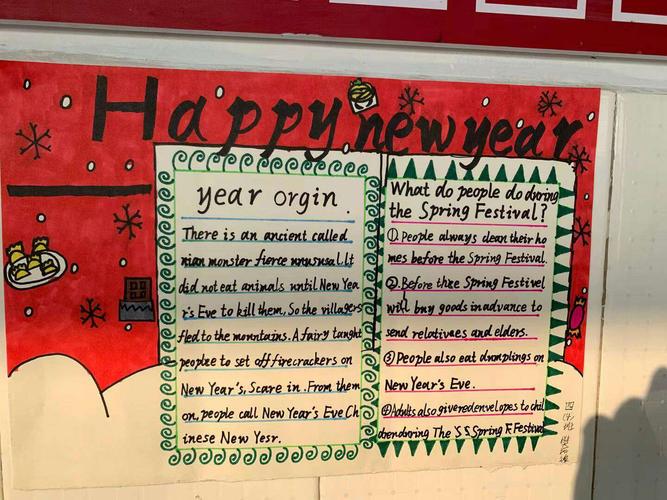 Happy new year
year orgin.
There is an ancient called
nian monster fierce unusual.It
did not eat animals until New Yea
r's Eve to kill them, So the villagers
fled to the mountains. A fairy taught
people to set off firecrackers on
New Year's, Scare in. From them
on, people call New Year's Eve Ch
inese New Yesr.
What do people do during
the Spring Festival?
① People always clean their ho
mes before the Spring Festival.
② Before the Spring Festivel
will buy goods in advance to
send relatives and elders.
③ People also eat dumplings on
New Year's Eve.
④ Adults also give red envelopes to chil
dren during The Spring Festival
四
班